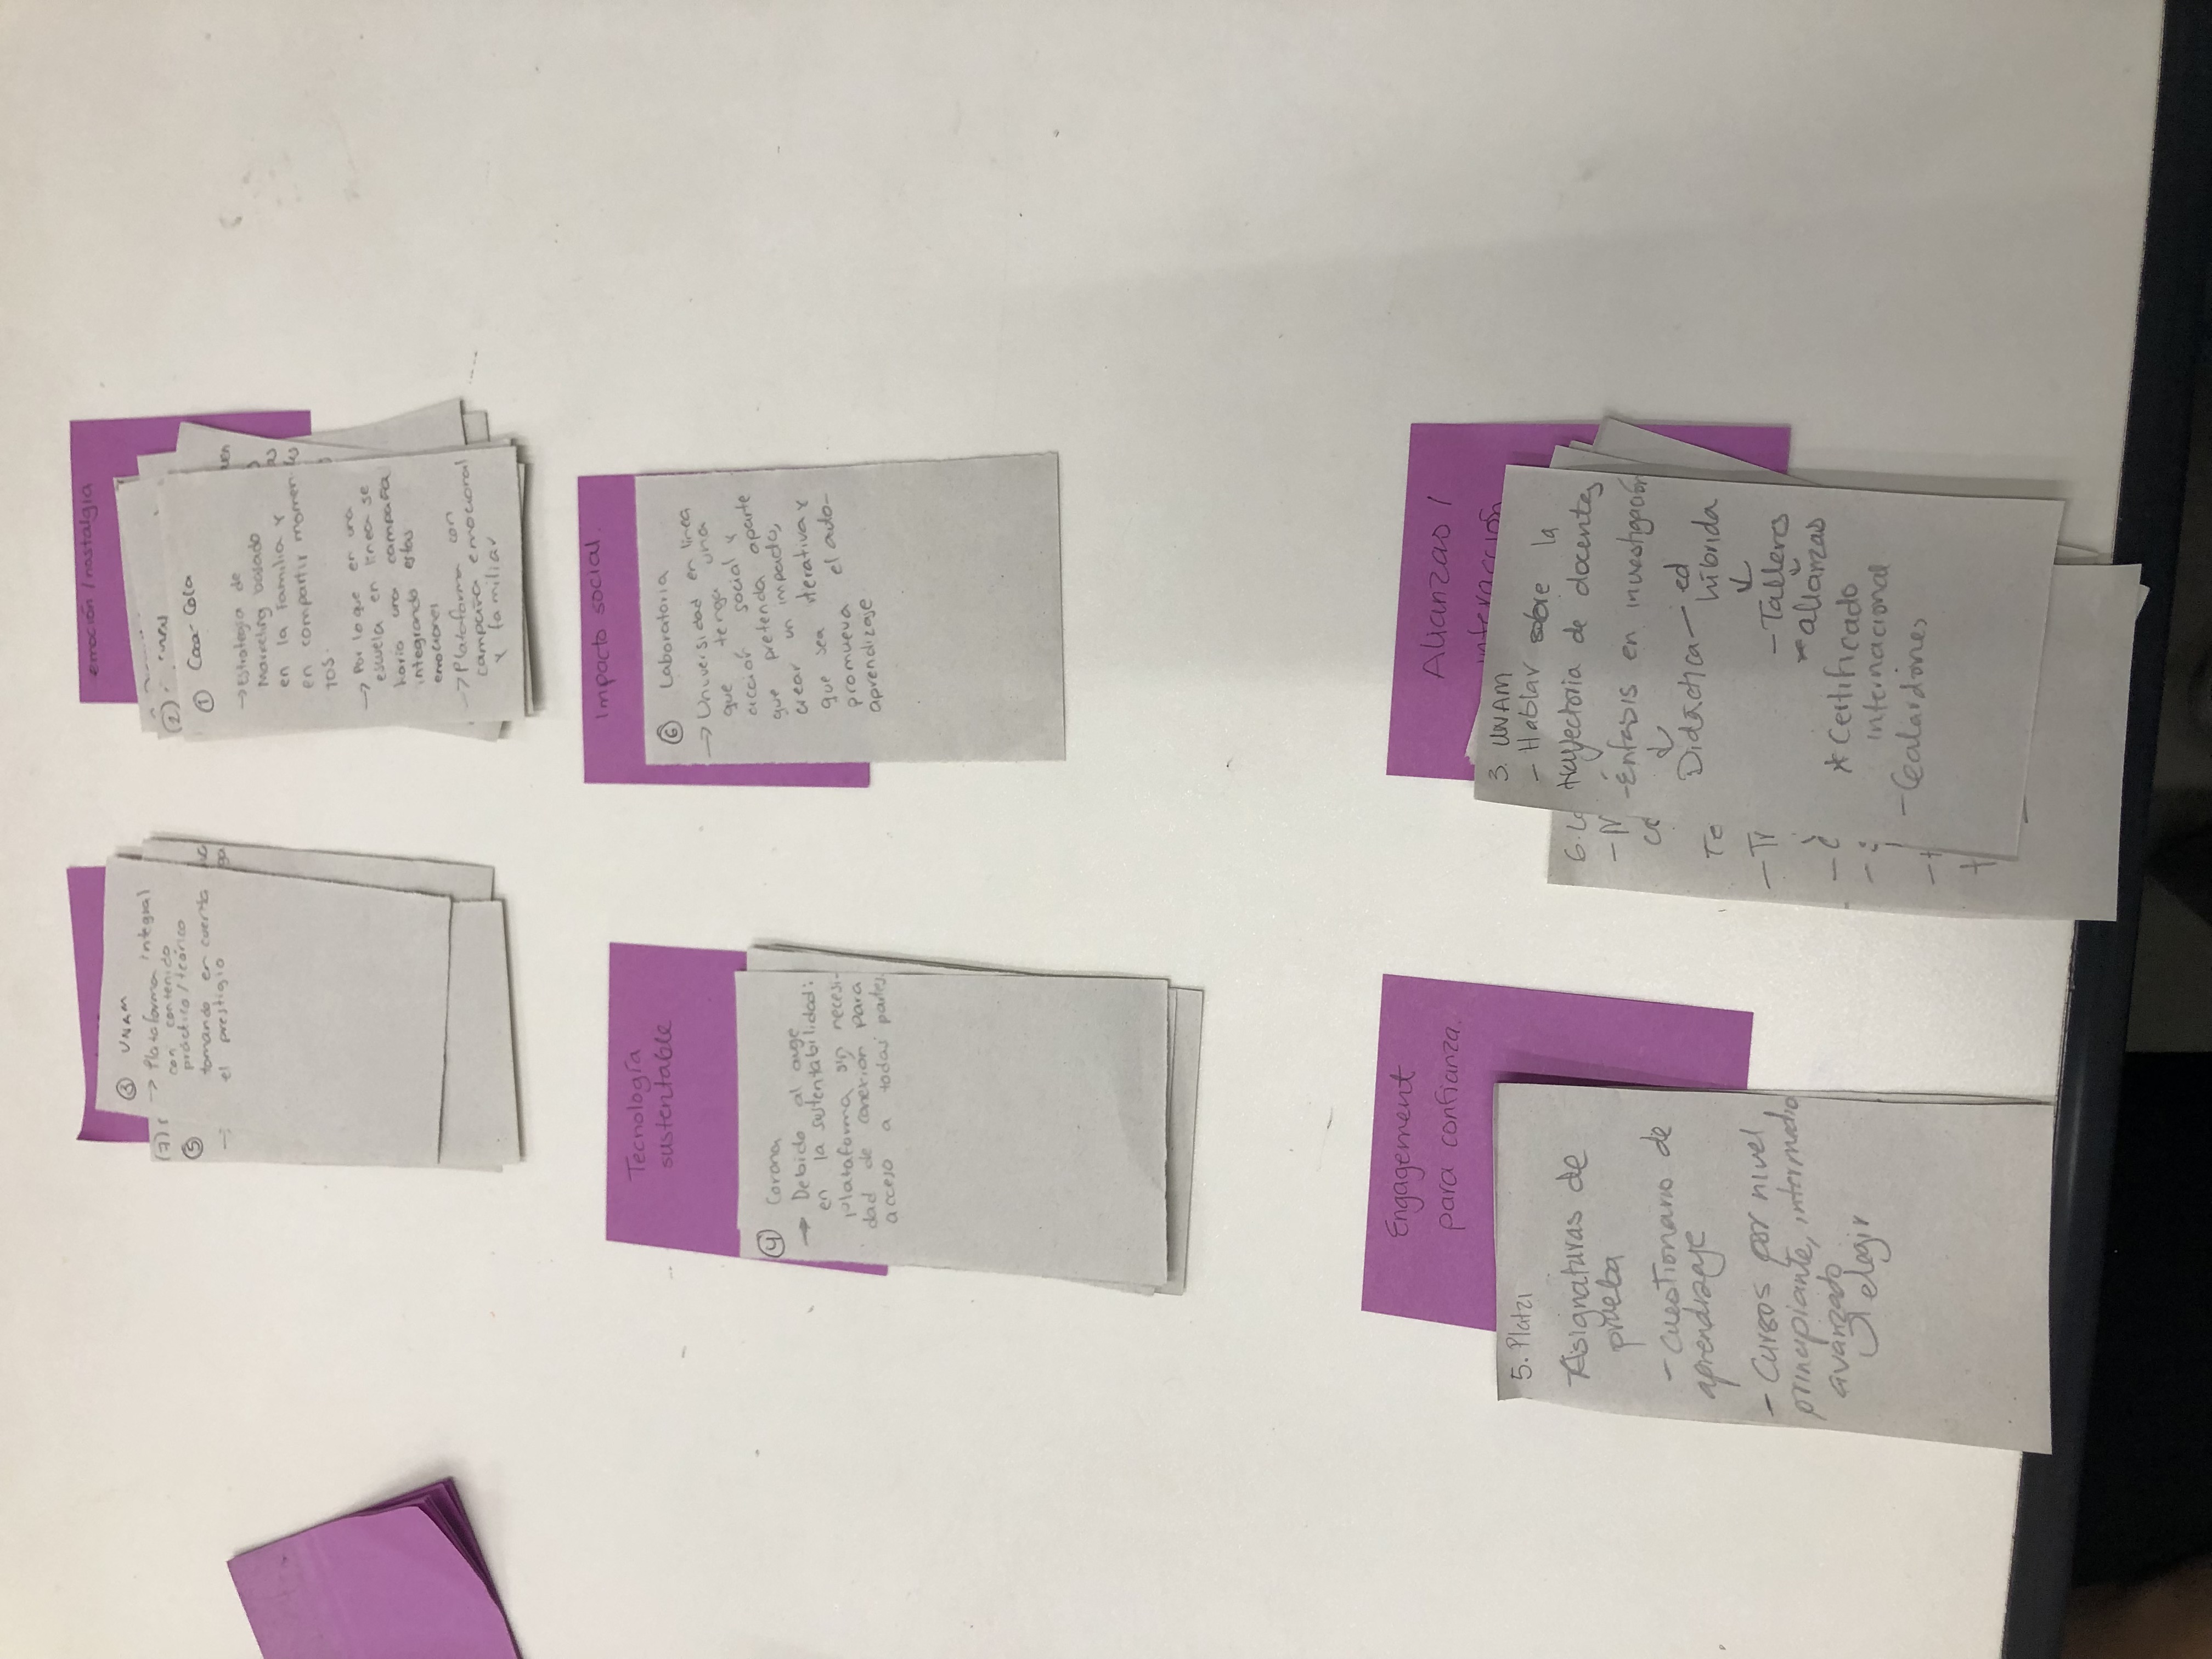 ③ UNAM
→ Plataforma integral
con contenido
práctico/teórico
tomando en cuenta
el prestigio
(7)
⑤
→
emoción / nostalgia
(2)
① Coca-Cola
→ Estrategia de
Marketing basado
en la familia y
en compartir momen-
tos.
→ Por lo que en una
escuela en línea se
haria una campaña
integrando estas
emociones
→ Plataforma con
campaña emocional
y familiar
Tecnología
sustentable
④ Corona
→ Debido al auge
en la sustentabilidad:
plataforma sin necesi-
dad de conexión para
acceso a todas partes.
Impacto social.
⑥ Laboratoria
→ Universidad en línea
que tenga una
acción social y
que pretenda aparte
crear un impacto,
que sea iterativa y
promueva el auto-
aprendizaje
Engagement
para confianza.
5. Platzi
- Asignaturas de
prueba
- Cuestionario de
aprendizaje
- Cursos por nivel
principiante, intermedio
avanzado
elegir
Alianzas /
interacción
3. UNAM
- Hablar sobre la
trayectoria de docentes
- Énfasis en investigación
↓
Didáctica — ed
híbrida
↓
- Talleres
* alianzas
* Certificado
internacional
- Galardones
6. La
- Tr